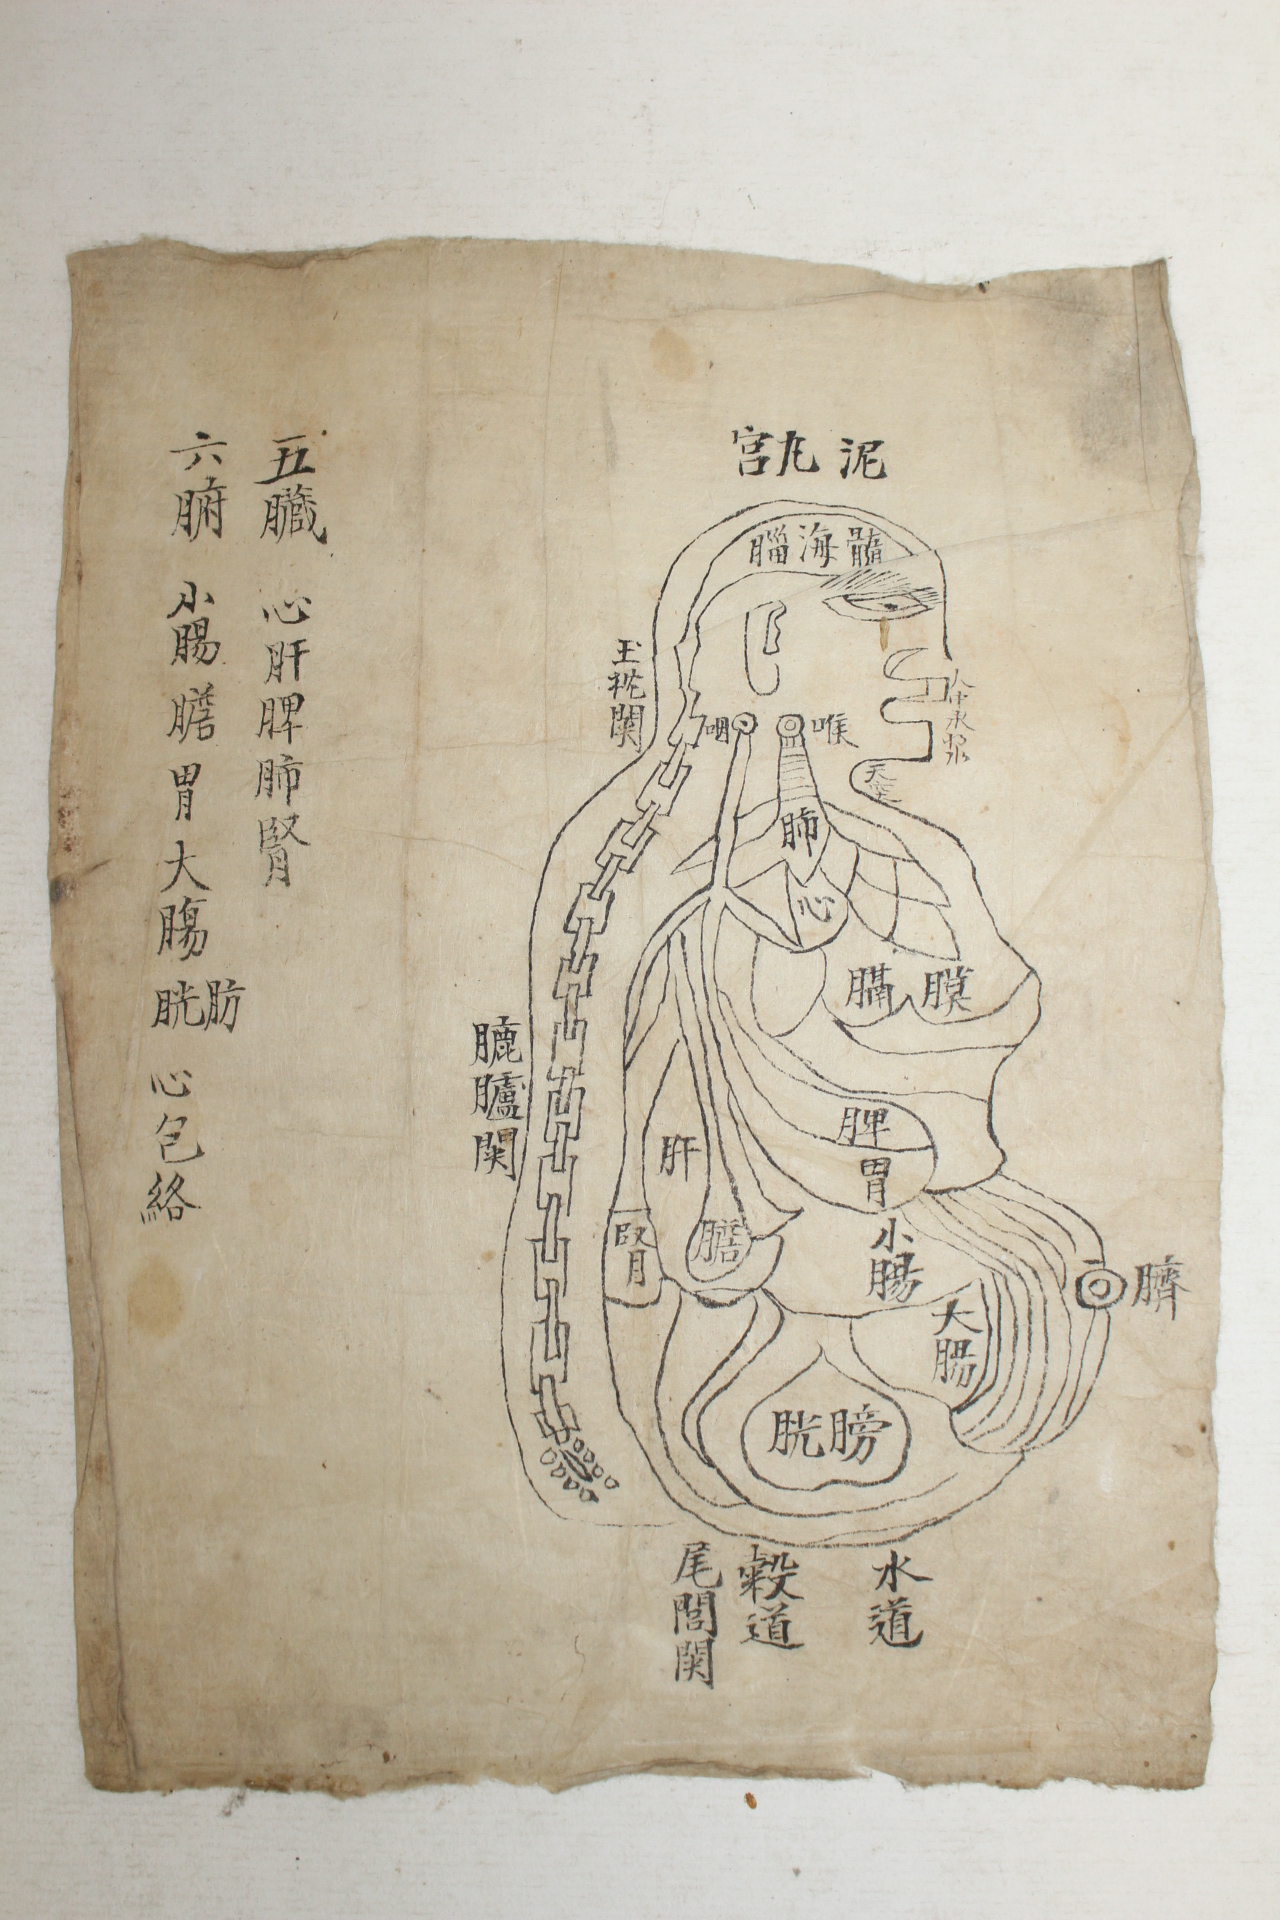 泥丸宮
髓海腦
玉枕関
咽
喉
肺
心
膈膜
脾
胃
肝
膽
腎
小腸
大腸
臍
膀胱
水道
穀道
尾閭関
五臟 心肝脾肺腎
六腑 小腸 膽 胃 大腸 肪胱 心包絡